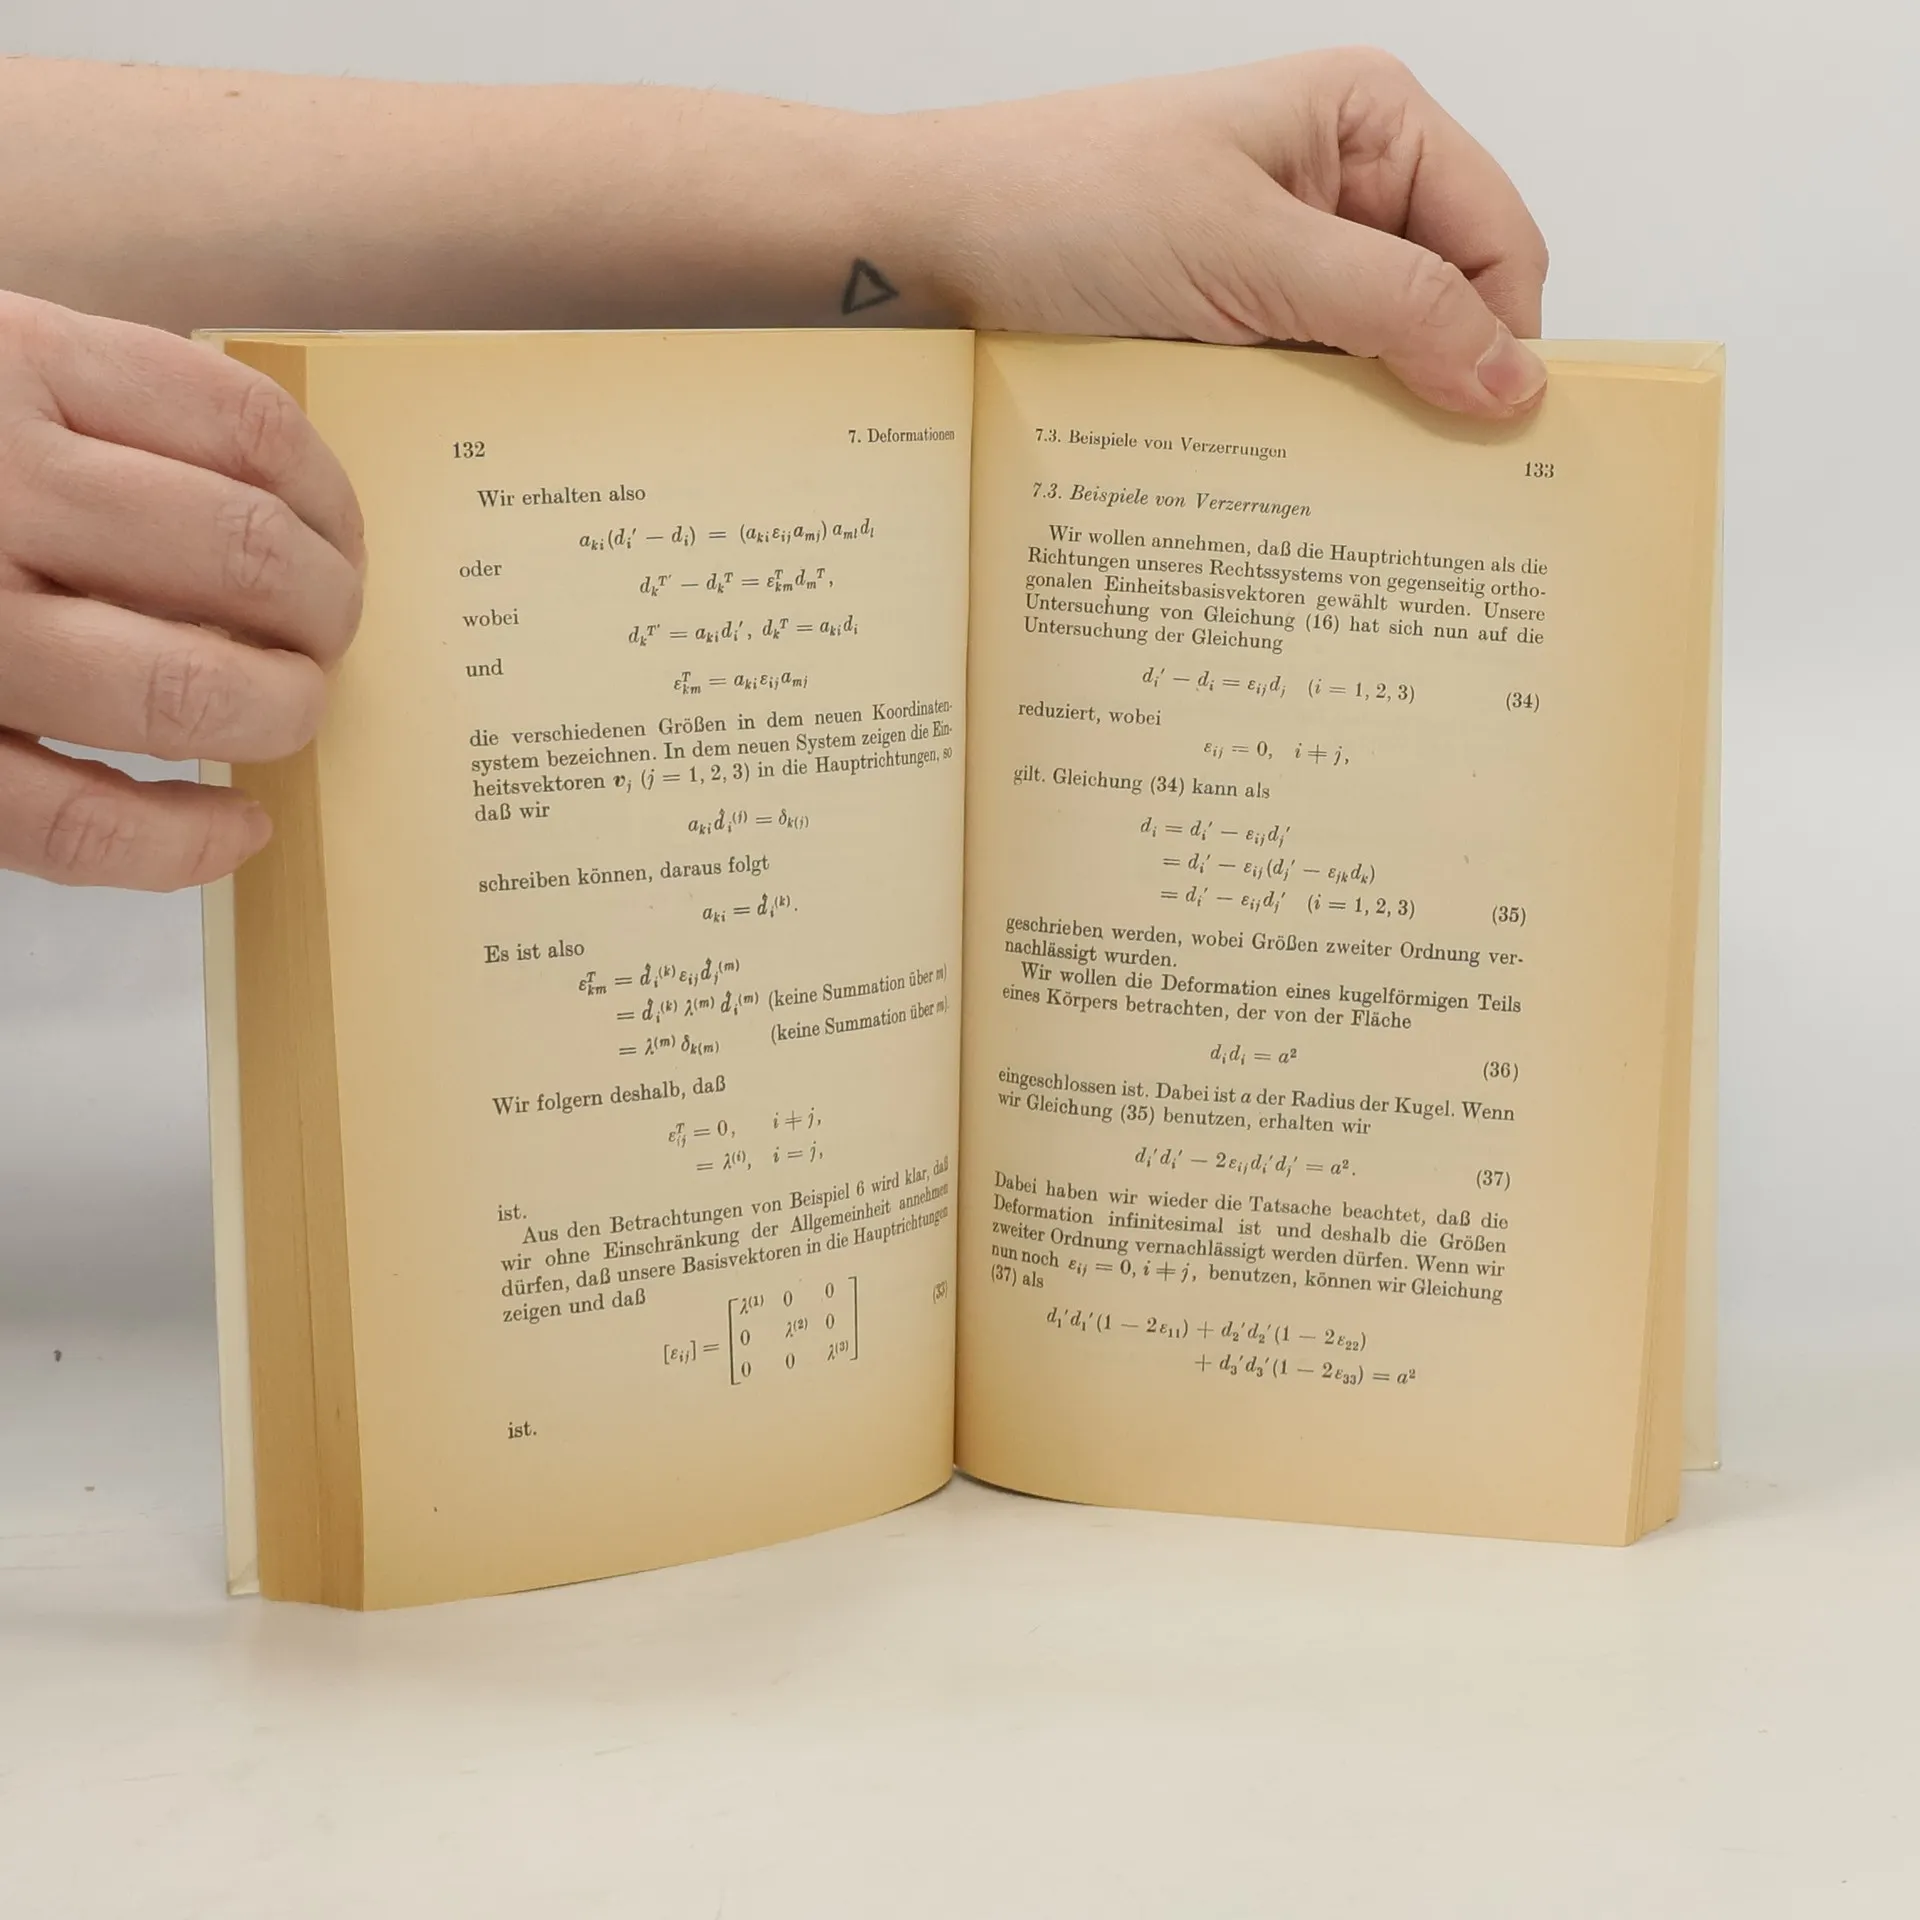 132
7. Deformationen
Wir erhalten also
aₖᵢ(dᵢ′ − dᵢ) = (aₖᵢεᵢⱼaₘⱼ) aₘₗdₗ
oder
dₖᵀ′ − dₖᵀ = εᵀₖₘdₘᵀ,
wobei
dₖᵀ′ = aₖᵢdᵢ′, dₖᵀ = aₖᵢdᵢ
und
εᵀₖₘ = aₖᵢεᵢⱼaₘⱼ
die verschiedenen Größen in dem neuen Koordinaten-
system bezeichnen. In dem neuen System zeigen die Ein-
heitsvektoren vⱼ (j = 1, 2, 3) in die Hauptrichtungen, so
daß wir
aₖᵢd̂ᵢ⁽ʲ⁾ = δₖ₍ⱼ₎
schreiben können, daraus folgt
aₖᵢ = d̂ᵢ⁽ᵏ⁾.
Es ist also
εᵀₖₘ = d̂ᵢ⁽ᵏ⁾εᵢⱼd̂ⱼ⁽ᵐ⁾
= d̂ᵢ⁽ᵏ⁾ λ⁽ᵐ⁾ d̂ᵢ⁽ᵐ⁾ (keine Summation über m)
= λ⁽ᵐ⁾ δₖ₍ₘ₎ (keine Summation über m).
Wir folgern deshalb, daß
εᵀᵢⱼ = 0, i ≠ j,
= λ⁽ⁱ⁾, i = j,
ist.
Aus den Betrachtungen von Beispiel 6 wird klar, daß
wir ohne Einschränkung der Allgemeinheit annehmen
dürfen, daß unsere Basisvektoren in die Hauptrichtungen
zeigen und daß
λ⁽¹⁾ 0 0
[εᵢⱼ] = 0 λ⁽²⁾ 0 (33)
0 0 λ⁽³⁾
ist.
7.3. Beispiele von Verzerrungen
133
7.3. Beispiele von Verzerrungen
Wir wollen annehmen, daß die Hauptrichtungen als die
Richtungen unseres Rechtssystems von gegenseitig ortho-
gonalen Einheitsbasisvektoren gewählt wurden. Unsere
Untersuchung von Gleichung (16) hat sich nun auf die
Untersuchung der Gleichung
dᵢ′ − dᵢ = εᵢⱼdⱼ (i = 1, 2, 3) (34)
reduziert, wobei
εᵢⱼ = 0, i ≠ j,
gilt. Gleichung (34) kann als
dᵢ = dᵢ′ − εᵢⱼdⱼ′
= dᵢ′ − εᵢⱼ(dⱼ′ − εⱼₖdₖ)
= dᵢ′ − εᵢⱼdⱼ′ (i = 1, 2, 3) (35)
geschrieben werden, wobei Größen zweiter Ordnung ver-
nachlässigt wurden.
Wir wollen die Deformation eines kugelförmigen Teils
eines Körpers betrachten, der von der Fläche
dᵢdᵢ = a² (36)
eingeschlossen ist. Dabei ist a der Radius der Kugel. Wenn
wir Gleichung (35) benutzen, erhalten wir
dᵢ′dᵢ′ − 2εᵢⱼdᵢ′dⱼ′ = a². (37)
Dabei haben wir wieder die Tatsache beachtet, daß die
Deformation infinitesimal ist und deshalb die Größen
zweiter Ordnung vernachlässigt werden dürfen. Wenn wir
nun noch εᵢⱼ = 0, i ≠ j, benutzen, können wir Gleichung
(37) als
d₁′d₁′(1 − 2ε₁₁) + d₂′d₂′(1 − 2ε₂₂)
+ d₃′d₃′(1 − 2ε₃₃) = a²